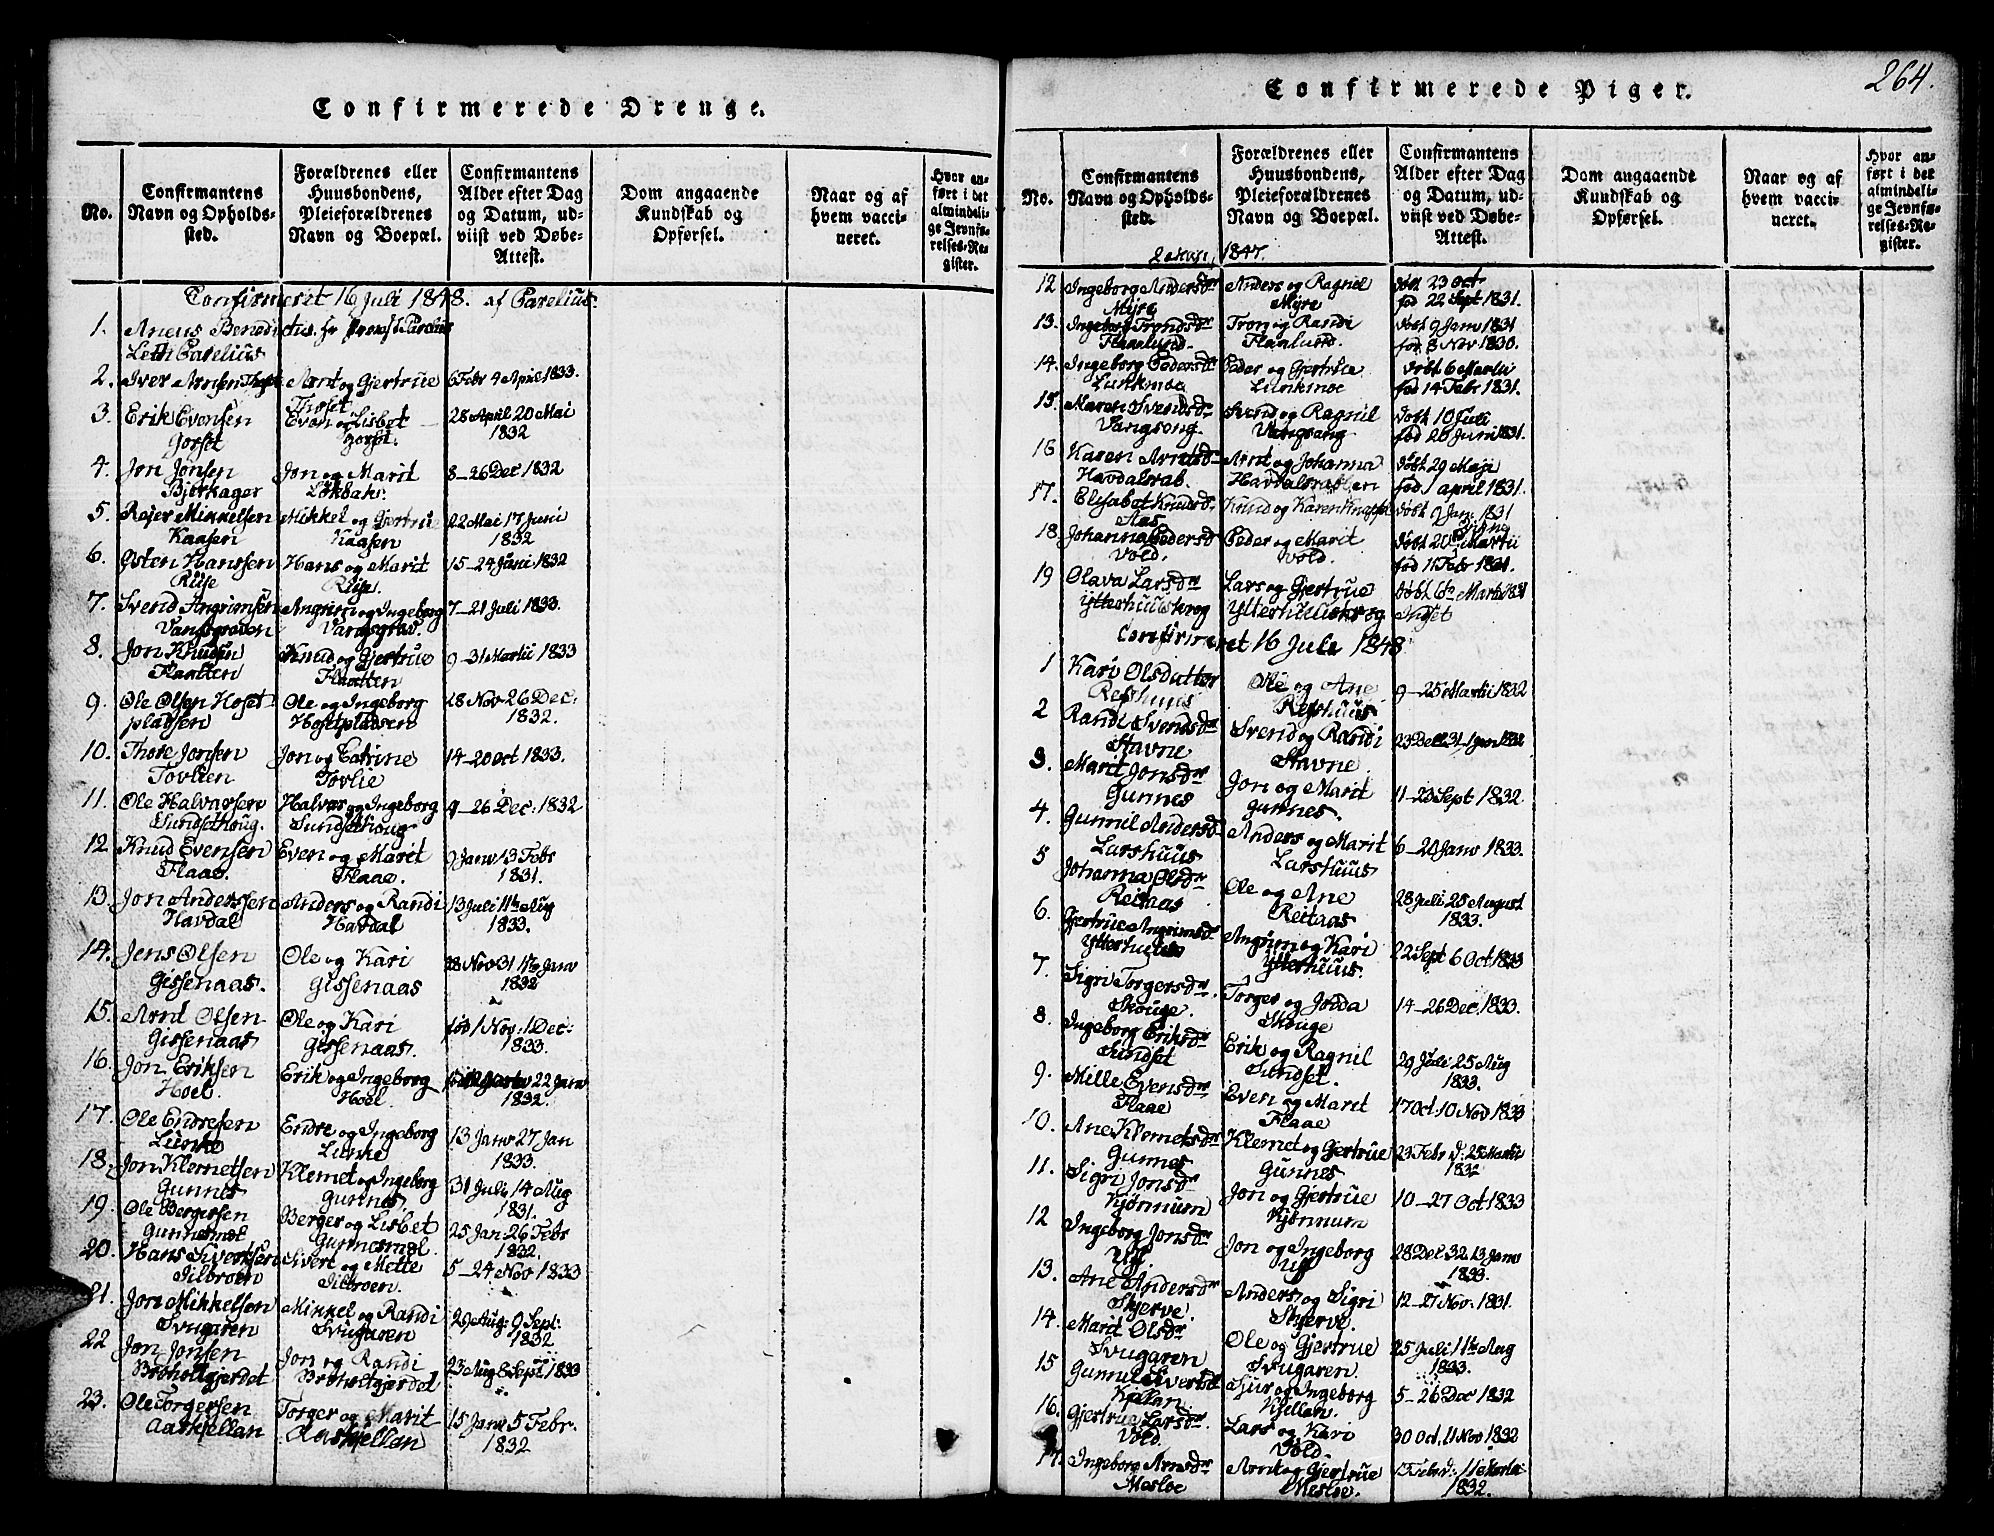 Confirmerede Drenge.
No.
Confirmantens
Navn og Opholds-
sted.
Forældrenes eller
Huusbondens,
Pleieforældrenes
Navn og Boepæl.
Confirmantens
Alder efter Dag
og Datum, ud-
viist ved Døbe-
Attest.
Dom angaaende
Kundskab og
Opførsel.
Naar og af
hvem vacci-
neret.
Hvor an-
ført i det
almindeli-
ge Jevnfø-
relses-Re-
gister.
Confirmeret 16 Juli 1848. af Parelius.
1. Benedictus
Parelius
2. Iver Arnsen Thoset Arnt og Gjertrue 6 Febr 4 April 1833.
Thoset
3. Erik Evensen Even og Lisbet 28 April 20 Mai
Jorset Jorset. 1832
4. Jon Jonsen Jon og Marit 8-26 Dec 1832
Bjerkager Lökbak.
5. Rejer Mikkelsen Mikkel og Gjertrue 22 Mai 17 Juni
Kaasen Kaasen 1832
6. Østen Hanssen Hans og Marit 15-24 Juni 1832
Riise Riise.
7. Svend Angrimsen Angrim og Ingeborg 7-21 Juli 1833.
Vangsgraden Vangsgras.
8. Jon Knudsen Knud og Gjertrue 9-31 Martii 1833
Flaatten Flaatten
9. Ole Olsen Hoset- Ole og Ingeborg 28 Nov 26 Dec:
pladsen Hosetpladsen 1832.
10. Thore Jonsen Jon og Catrine 14-20 Oct 1833.
Tovlien Tovlie
11. Ole Halvarsen Halvar og Ingeborg 9-26 Dec: 1832
Sundsethoug. Sundsethoug
12. Knud Evensen Even og Marit 9 Janv 13 Febr
Flaae. Flaae. 1831.
13. Jon Anderssen Anders og Randi 13 Juli 11te Aug
Havdal Havdal 1833.
14. Jens Olsen Ole og Kari 28 Nov 31 11te Janv
Gissenaas. Gissenaas 1832
15. Arnt Olsen Ole og Kari fød 1 Nov: 1 Dec:
Gissenaas Gissenaas. 1833.
16. Jon Eriksen Erik og Ingeborg 22 Janv
Hoel. Hoel 1832.
17. Ole Endresen Endre og Ingeborg 13 Janv 27 Jan
Lunke Lunke 1833.
18. Jon Klemetsen Klemet og Ingeborg 31 Juli 14 Aug
Gunnes Gunnes. 1831.
19. Ole Bergersen Berger og Lisbet 25 Jan: 26 Febr
Gunnesmøl Gunnesmøl. 1832.
20. Hans Sivertsen Sivert og Mette 5-24 Nov 1833
Tilbroen Tilbroen.
21. Jon Mikkelsen Mikkel og Randi 29 Aug: 9 Sept:
Svugaren Svugaren 1832
22 Jon Jonsen Jon og Randi 23 Aug 8 Sept 1833
Broholtgjerdet Broholtgjerdet
23. Ole Torgersen Torger og Marit 15 Janv 5 Febr.
Aaskjellan Aaskjellan 1832
264.
Confirmerede Piger.
No.
Confirmantens
Navn og Opholds-
sted.
Forældrenes eller
Huusbondens,
Pleieforældrenes
Navn og Boepæl.
Confirmantens
Alder efter Dag
og Datum, ud-
viist ved Døbe-
Attest.
Dom angaaende
Kundskab og
Opførsel.
Naar og af
hvem vacci-
neret.
Hvor an-
ført i det
almindeli-
ge Jevnfø-
relses-Re-
gister.
1847.
12 Ingeborg Andersdr Anders og Ragnel døbt 23 Oct
Myre Myre fød 22 Sept 1831.
13. Ingeborg Trondsdr Tron og Randi døbt 9 Janv 1831
Flaalund. Flaalund. fød 8 Nov 1830.
14. Ingeborg Pedersdr Peder og Gjertrue døbt 6 Martii
Lunkmoe Lunkmoe fød 14 Febr 1831.
15. Maren Svendsdr Svend og Ragnil døbt 10 Juli
Vangsong. Vangsong fød 20 Juni 1831.
16 Karen Arntsdr Arnt og Johanna døbt 29 Maji
Havdalsrab. Havdalsrabben fød 1 april 1831.
17. Elisabet Knudsd. Knud og Karen døbt 9 Jan: 1831
Aas
18. Johanna Pedersd Peder og Marit døbt 20 Martii
Vold. Vold. fød 11 Febr 1831.
19 Olava Larsdr Lars og Gjertrue døbt 6te Martii 1831
Ytterhuuskrog Ytterhuuskrog
Confirmeret 16 Juli 1848
1 Kari Olsdatter Ole og Ane 9-25 Martii 1832
Reshuus Reshuus
2 Randi Svendsdr Svend og Randi 23 Dec 31-1 Jan 1832
Stavne Stavne
3. Marit Jonsdr Jon og Marit 11-23 Sept 1832.
Gunnes Gunnes.
4. Gunnil Andersd Anders og Marit 6-20 Janv 1833.
Larshuus Larshuus
5 Johanna Olsdr Ole og Ane 28 Juli 25 August
Reitaas Reitaas 1833.
6. Gjertrue Angrimsdr Angrim og Kari 22 Sept 6 Oct 1833
Ytterhuus Ytterhuus.
7. Sigri Torgersdr. Torger og Jodda 14-26 Dec. 1833.
Skouge. Skouge
8. Ingeborg Eriksdr Erik og Ragnil 29 Juli 25 Aug
Sundset Sundset. 1833.
9. Mille Evensdr Even og Marit 17 Oct 10 Nov 1833
Flaae Flaae
10. Ane Klemetsdr Klemet og Gjertrue 23 Febr d: 25 Martii
Gunnes Gunnes 1832
11. Sigri Jonsdr Jon og Gjertrue 10-27 Oct 1833
Kjønnum Kjønnum
12 Ingeborg Jonsdr Jon og Ingeborg 28 Dec 32. 13 Janv
Uf. Uf 1833.
13. Ane Andersdr Anders og Sigri 12-27 Nov: 1831.
Skjerve. Skjerve.
14. Marit Olsdr Ole og Gjertrue 25 Juli 11te Aug
Svugaren Svugaren. 1833.
15 Gunnil Siversd Sjur og Ingeborg 5-26 Dec 1832
Kjelan. Kjellen.
16. Gjertrue Larsdr Lars og Kari 30 Oct. 11 Nov 1832
Vold. Vold.
17. Ingeborg Arnsdr Arnt og Gjertrue
Mesloe Mesloe. 1832.